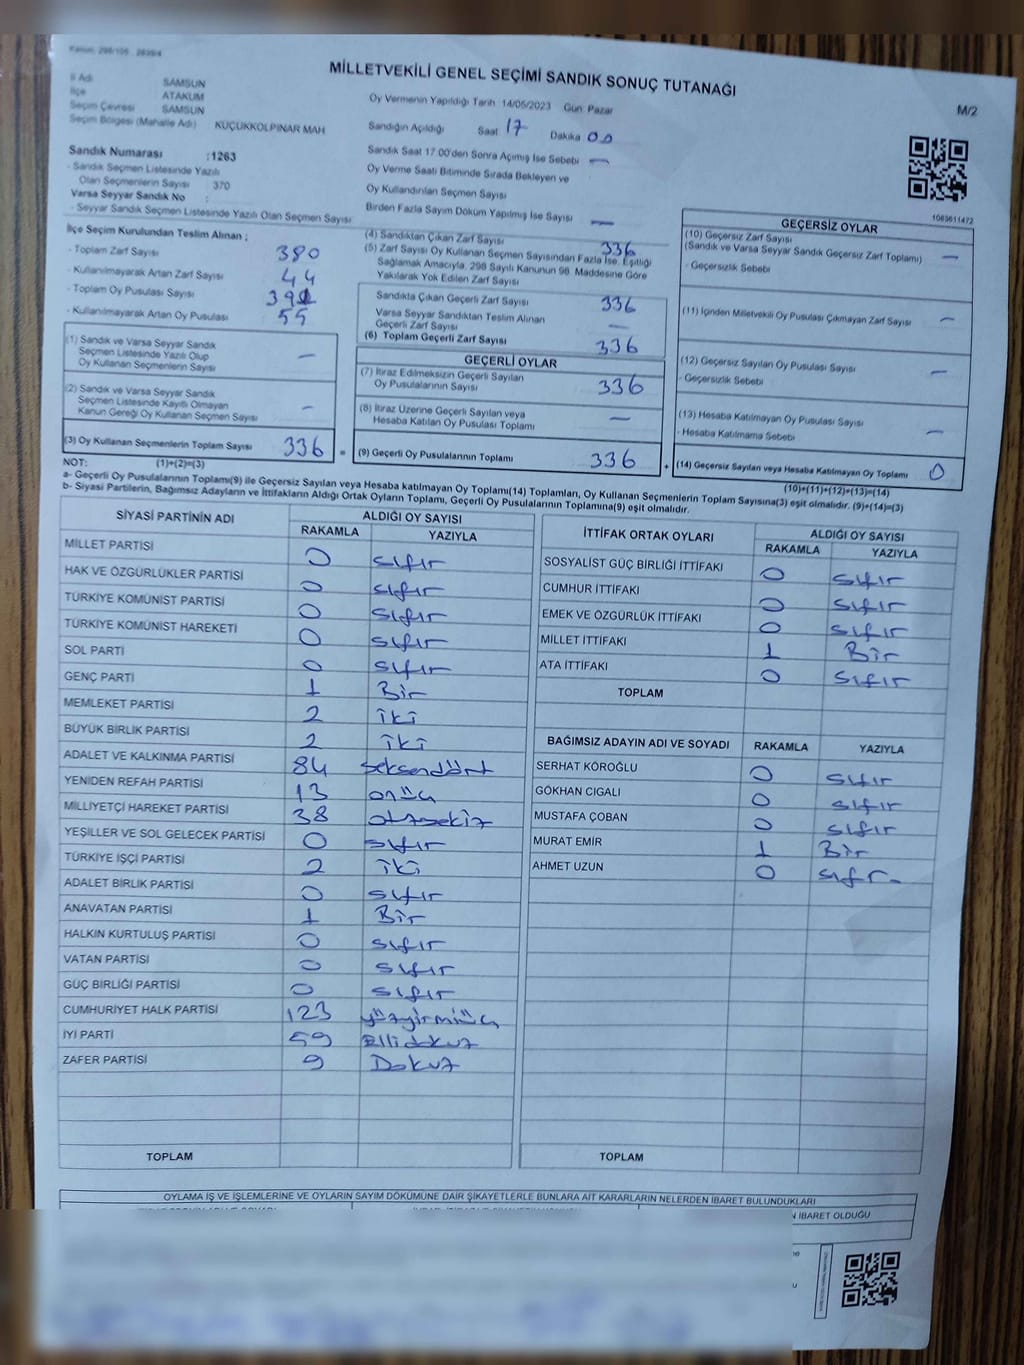 Kanun: 298/105 , 2839/4
MİLLETVEKİLİ GENEL SEÇİMİ SANDIK SONUÇ TUTANAĞI
M/2
İl Adı SAMSUN
İlçe ATAKUM
Seçim Çevresi SAMSUN
Seçim Bölgesi (Mahalle Adı) KÜÇÜKKOLPINAR MAH
Oy Vermenin Yapıldığı Tarih 14/05/2023 Gün Pazar
Sandığın Açıldığı Saat 17 Dakika 00
Sandık Saat 17.00'den Sonra Açımış İse Sebebi —
Oy Verme Saati Bitiminde Sırada Bekleyen ve
Oy Kullandırılan Seçmen Sayısı
Birden Fazla Sayım Döküm Yapılmış İse Sayısı —
Sandık Numarası :1263
- Sandık Seçmen Listesinde Yazılı
Olan Seçmenlerin Sayısı 370
Varsa Seyyar Sandık No :
- Seyyar Sandık Seçmen Listesinde Yazılı Olan Seçmen Sayısı
1063611472
İlçe Seçim Kurulundan Teslim Alınan ;
- Toplam Zarf Sayısı 380
- Kullanılmayarak Artan Zarf Sayısı 44
- Toplam Oy Pusulası Sayısı
- Kullanılmayarak Artan Oy Pusulası 55
(1) Sandık ve Varsa Seyyar Sandık
Seçmen Listesinde Yazılı Olup
Oy Kullanan Seçmenlerin Sayısı —
(2) Sandık ve Varsa Seyyar Sandık
Seçmen Listesinde Kayıtlı Olmayan
Kanun Gereği Oy Kullanan Seçmen Sayısı —
(3) Oy Kullanan Seçmenlerin Toplam Sayısı 336 =
(4) Sandıktan Çıkan Zarf Sayısı 336
(5) Zarf Sayısı Oy Kullanan Seçmen Sayısından Fazla İse, Eşitliği
Sağlamak Amacıyla, 298 Sayılı Kanunun 98. Maddesine Göre
Yakılarak Yok Edilen Zarf Sayısı
Sandıkta Çıkan Geçerli Zarf Sayısı 336
Varsa Seyyar Sandıktan Teslim Alınan
Geçerli Zarf Sayısı —
(6) Toplam Geçerli Zarf Sayısı 336
GEÇERLİ OYLAR
(7) İtiraz Edilmeksizin Geçerli Sayılan
Oy Pusulalarının Sayısı 336
(8) İtiraz Üzerine Geçerli Sayılan veya
Hesaba Katılan Oy Pusulası Toplamı —
(9) Geçerli Oy Pusulalarının Toplamı 336 +
GEÇERSİZ OYLAR
(10) Geçersiz Zarf Sayısı
(Sandık ve Varsa Seyyar Sandık Geçersiz Zarf Toplamı) —
- Geçersizlik Sebebi
(11) İçinden Milletvekili Oy Pusulası Çıkmayan Zarf Sayısı —
(12) Geçersiz Sayılan Oy Pusulası Sayısı —
- Geçersizlik Sebebi
(13) Hesaba Katılmayan Oy Pusulası Sayısı
- Hesaba Katılmama Sebebi —
(14) Geçersiz Sayılan veya Hesaba Katılmayan Oy Toplamı 0
NOT: (1)+(2)=(3)
(10)+(11)+(12)+(13)=(14)
a- Geçerli Oy Pusulalarının Toplamı(9) ile Geçersiz Sayılan veya Hesaba katılmayan Oy Toplamı(14) Toplamları, Oy Kullanan Seçmenlerin Toplam Sayısına(3) eşit olmalıdır. (9)+(14)=(3)
b- Siyasi Partilerin, Bağımsız Adayların ve İttifakların Aldığı Ortak Oyların Toplamı, Geçerli Oy Pusulalarının Toplamına(9) eşit olmalıdır.
SİYASİ PARTİNİN ADI ALDIĞI OY SAYISI
RAKAMLA YAZIYLA
MİLLET PARTİSİ 0 sıfır
HAK VE ÖZGÜRLÜKLER PARTİSİ 0 sıfır
TÜRKİYE KOMÜNİST PARTİSİ 0 sıfır
TÜRKİYE KOMÜNİST HAREKETİ 0 sıfır
SOL PARTİ 0 sıfır
GENÇ PARTİ 1 Bir
MEMLEKET PARTİSİ 2 iki
BÜYÜK BİRLİK PARTİSİ 2 iki
ADALET VE KALKINMA PARTİSİ 84 seksendört
YENİDEN REFAH PARTİSİ 13 onüç
MİLLİYETÇİ HAREKET PARTİSİ 38 otuzsekiz
YEŞİLLER VE SOL GELECEK PARTİSİ 0 sıfır
TÜRKİYE İŞÇİ PARTİSİ 2 iki
ADALET BİRLİK PARTİSİ 0 sıfır
ANAVATAN PARTİSİ 1 Bir
HALKIN KURTULUŞ PARTİSİ 0 sıfır
VATAN PARTİSİ 0 sıfır
GÜÇ BİRLİĞİ PARTİSİ 0 sıfır
CUMHURİYET HALK PARTİSİ 123 yüzyirmiüç
İYİ PARTİ 59 Ellidokuz
ZAFER PARTİSİ 9 Dokuz
TOPLAM
İTTİFAK ORTAK OYLARI ALDIĞI OY SAYISI
RAKAMLA YAZIYLA
SOSYALİST GÜÇ BİRLİĞİ İTTİFAKI 0 sıfır
CUMHUR İTTİFAKI 0 sıfır
EMEK VE ÖZGÜRLÜK İTTİFAKI 0 sıfır
MİLLET İTTİFAKI 1 Bir
ATA İTTİFAKI 0 sıfır
TOPLAM
BAĞIMSIZ ADAYIN ADI VE SOYADI RAKAMLA YAZIYLA
SERHAT KÖROĞLU 0 sıfır
GÖKHAN CIGALI 0 sıfır
MUSTAFA ÇOBAN 0 sıfır
MURAT EMİR 1 Bir
AHMET UZUN 0 sıfır
TOPLAM
OYLAMA İŞ VE İŞLEMLERİNE VE OYLARIN SAYIM DÖKÜMÜNE DAİR ŞİKAYETLERLE BUNLARA AİT KARARLARIN NELERDEN İBARET BULUNDUKLARI
İBARET OLDUĞU